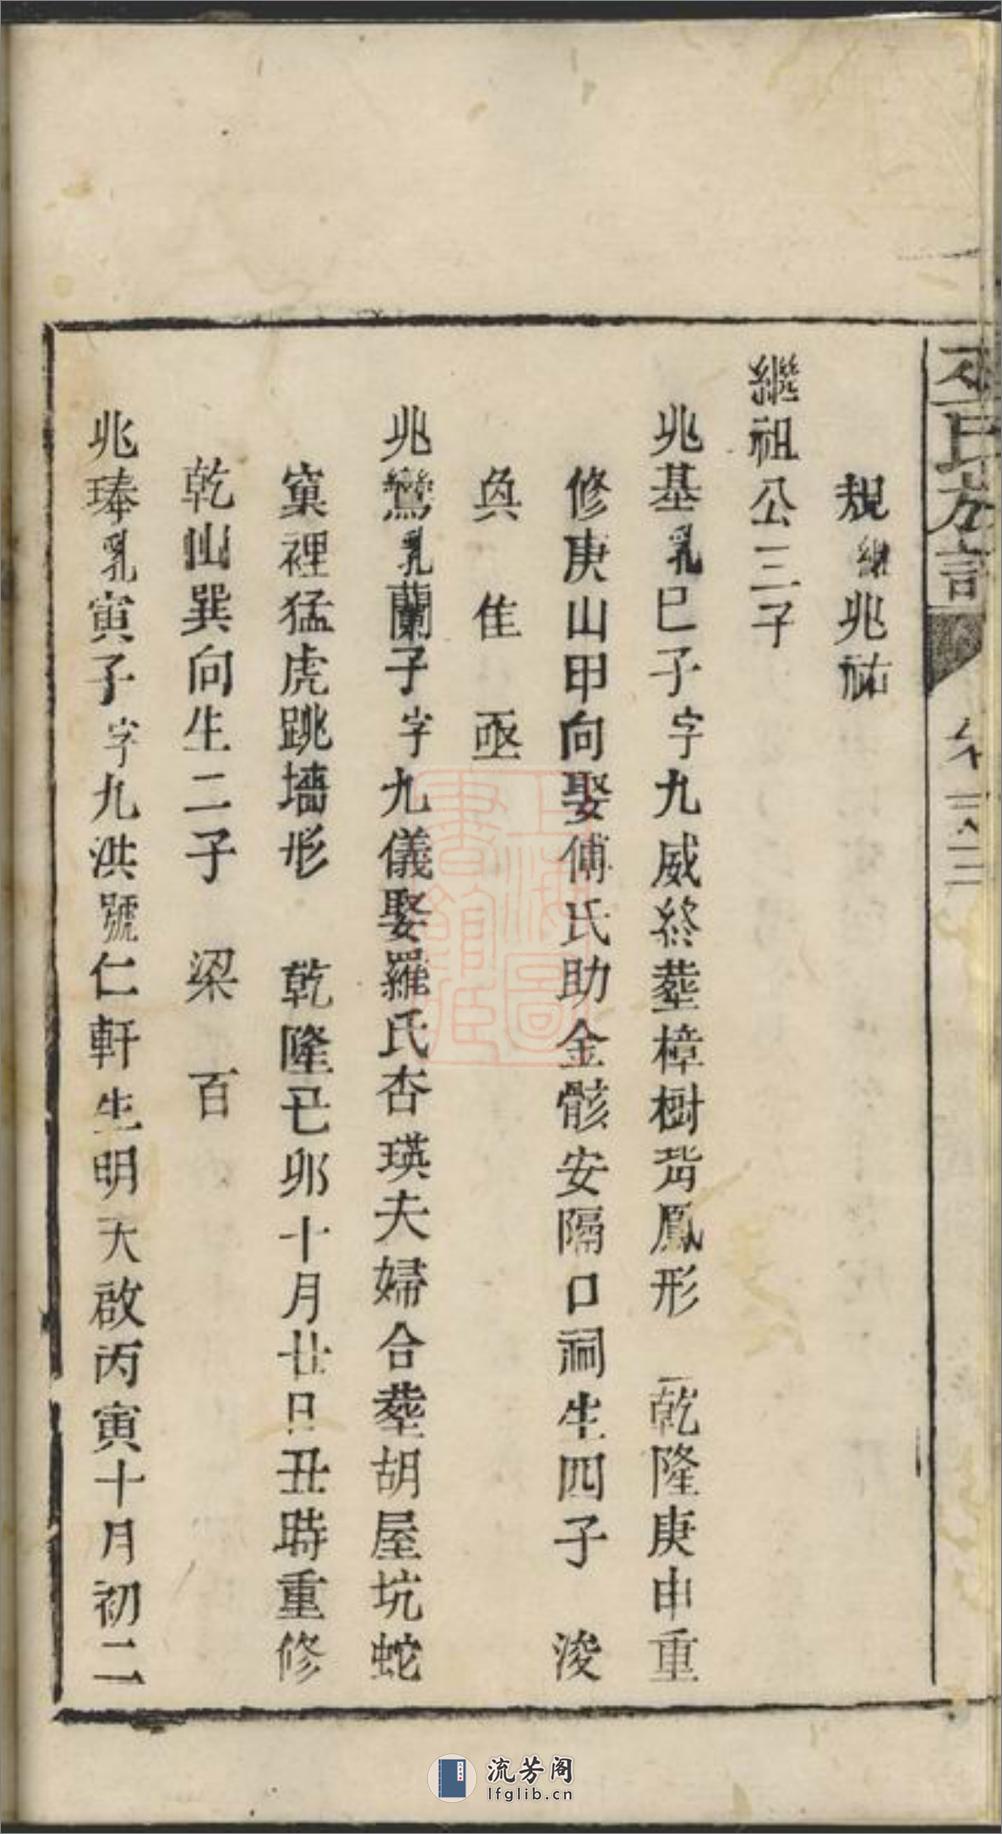 規繼兆祐
繼祖公三子
兆基乳巳子字九威終塟樟樹背鳳形 乾隆庚申重
修庚山甲向娶傅氏助金骸安隔口祠生四子 浚
奐 隹 亟
兆鸞乳蘭子字九儀娶羅氏杏瑛夫婦合塟胡屋坑蛇
窠裡猛虎跳墻形 乾隆己卯十月廿日丑時重修
乾山巽向生二子 梁 百
兆琫乳寅子字九洪號仁軒生明天啟丙寅十月初二
巫氏族譜
上海圖書館藏
流芳阁
lfglib.cn